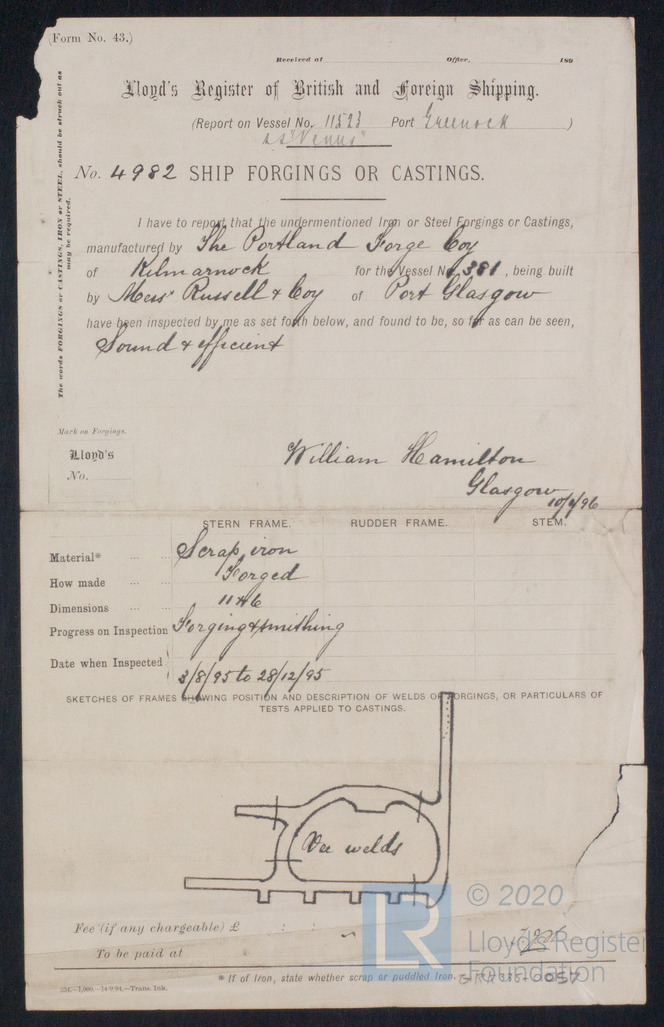 (Form No. 43.)
Received at Office, 189
Lloyd's Register of British and Foreign Shipping.
(Report on Vessel No. 11523 Port Greenock )
s.s "Venus"
No. 4982 SHIP FORGINGS OR CASTINGS.
The words FORGINGS or CASTINGS, IRON or STEEL, should be struck out as
may be required.
I have to report that the undermentioned Iron or Steel Forgings or Castings,
manufactured by The Portland Forge Coy
of Kilmarnock for the Vessel No. 381, being built
by Messrs Russell & Coy of Port Glasgow
have been inspected by me as set forth below, and found to be, so far as can be seen,
Sound & efficient
Mark on Forgings.
Lloyd's
No.
William Hamilton
Glasgow
STERN FRAME. RUDDER FRAME. STEM.
Material* Scrap iron
How made Forged
Dimensions
Progress on Inspection Forging & smithing
Date when Inspected 3/8/95 to 28/12/95
SKETCHES OF FRAMES SHOWING POSITION AND DESCRIPTION OF WELDS OR FORGINGS, OR PARTICULARS OF
TESTS APPLIED TO CASTINGS.
Vee welds
© 2020
LR
Lloyd's Register
Foundation
Fee (if any chargeable) £ : :
To be paid at
* If of Iron, state whether scrap or puddled Iron.
25d.—1,000.—14/9/94.—Trans. Ink.